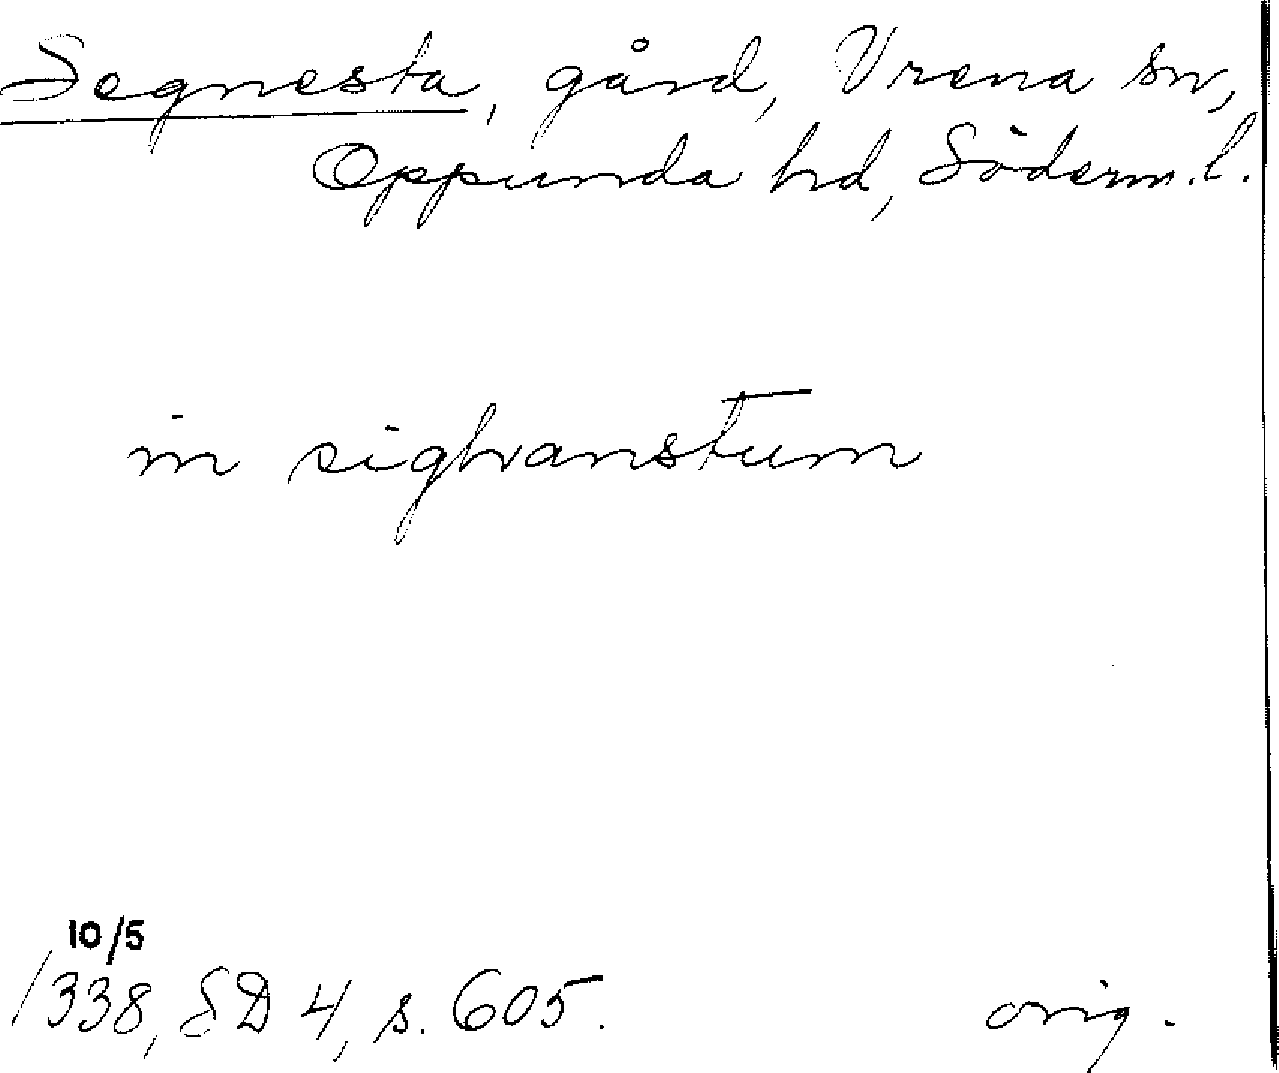 Segnesta, gård, Vrena sn,
Oppunda hd, Söderm. l.
in sighvanstum
10/5
1338, SD 4, s. 605.
orig.